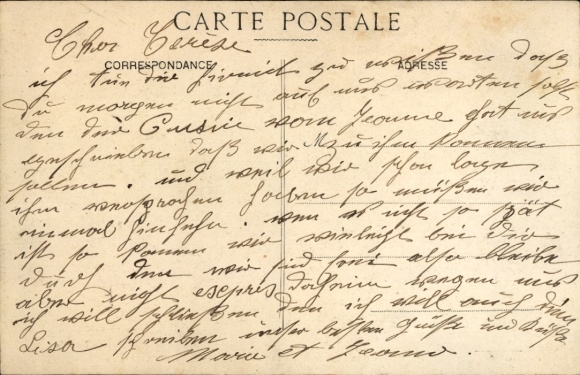 CARTE POSTALE
CORRESPONDANCE
ADRESSE
Cher Terèse
ich tue dir hiemit zu wissen daß
du morgen nicht auf uns warten sollst
den der Cusin vom Jeanne hat uns
geschrieben daß wir zu ihm kommen
sollen. und weil wir schon lange
ihm versprochen haben so müßen wir
einmal hingehn. wen es nicht so spät
ist so komen wir vieleicht bei dir
durch den wir sind frei also bleibe
aber nicht esepris daheim wegen uns
ich will schließen den ich will auch dein
Lisa schreiben unser besten Grüße und Küße
Marie et Jeanne.